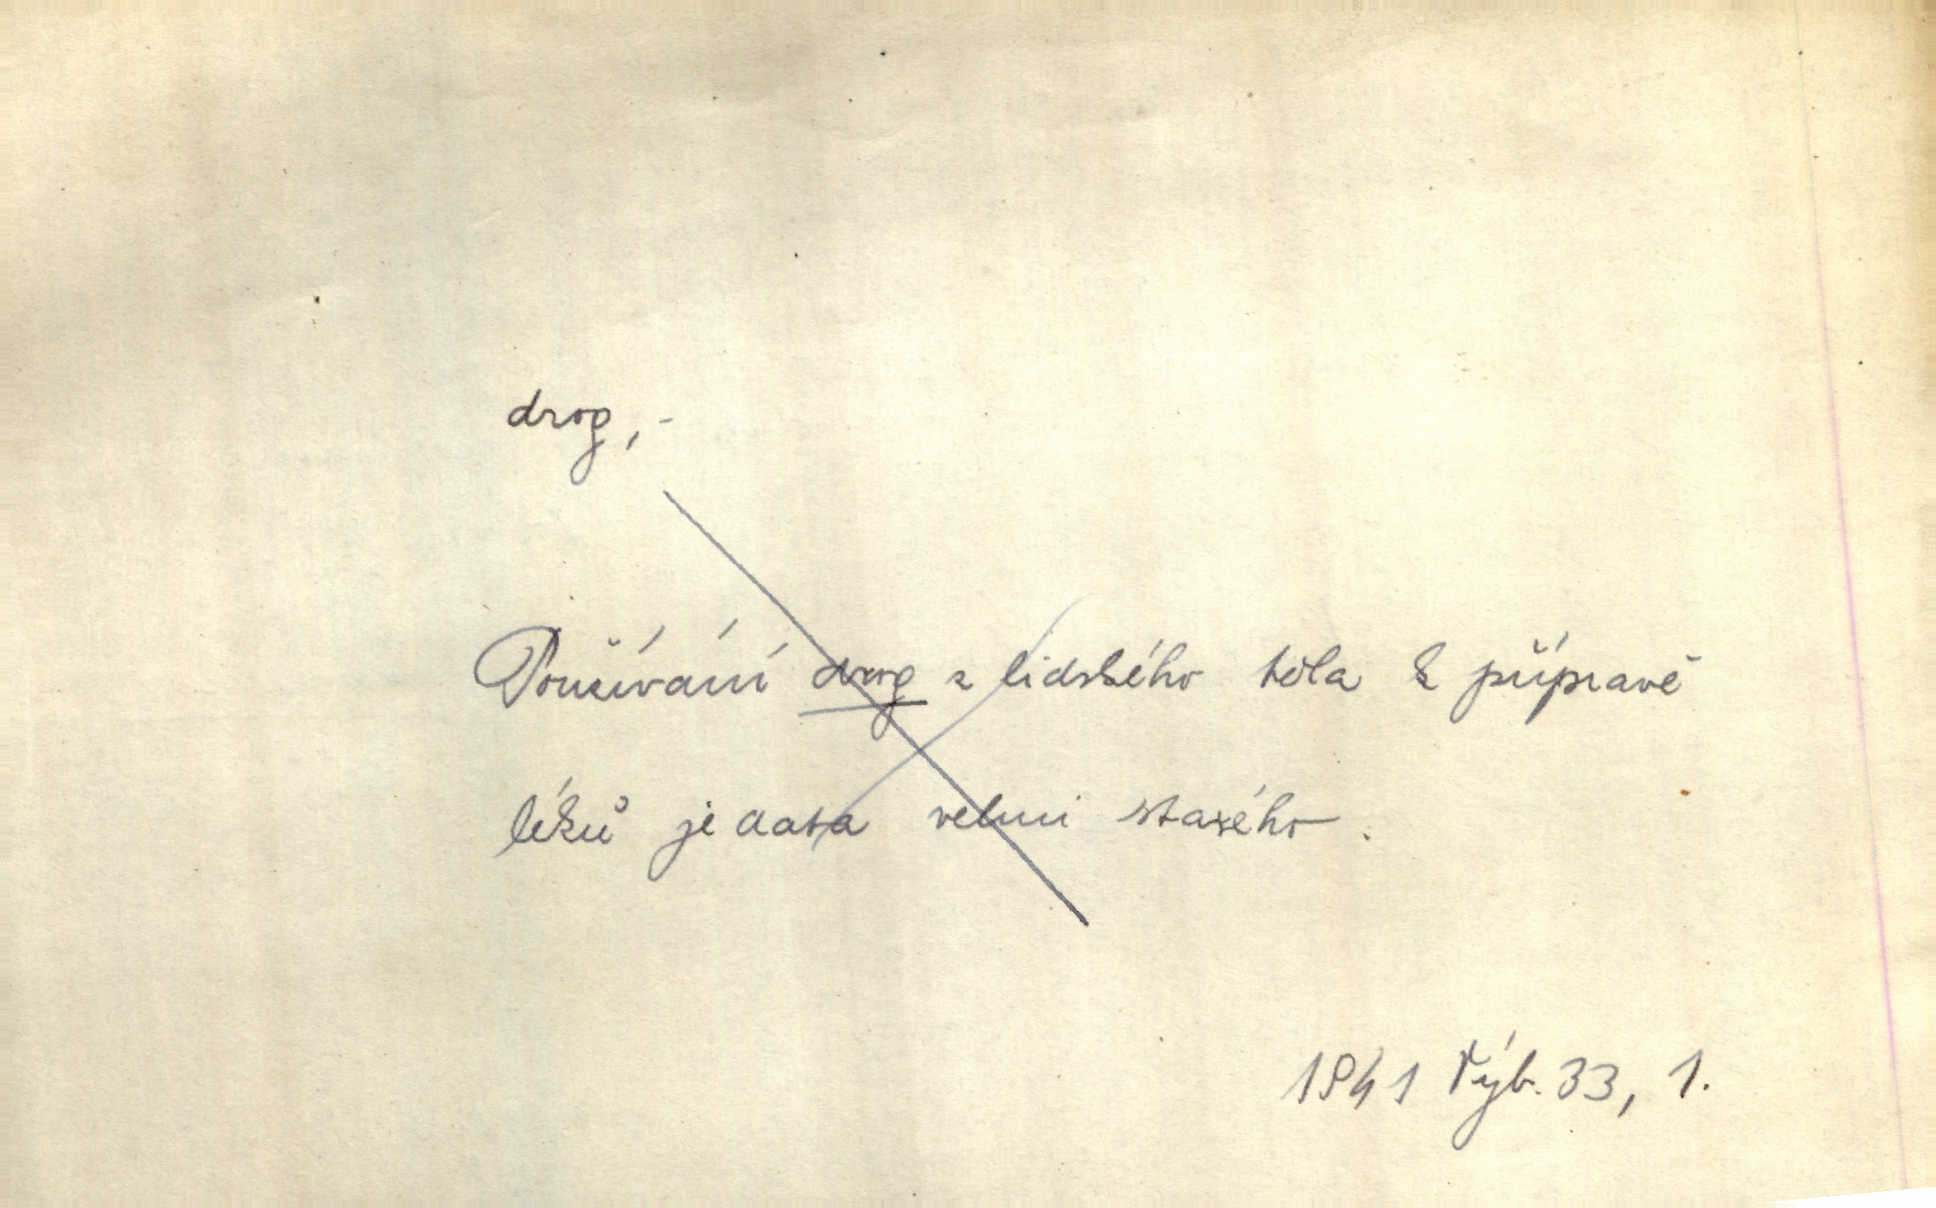 drog, -
Používání drog z lidského těla k přípravě
léků je data velmi starého.
1941 Výb. 33, 1.